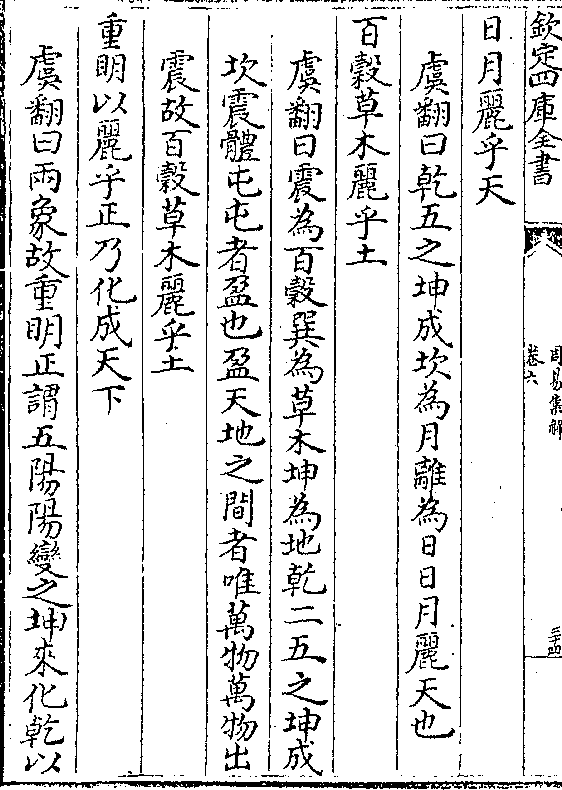 欽定四庫全書
周易集解
卷六
三十四
日月麗乎天
虞翻曰乾五之坤成坎為月離為日日月麗天也
百穀草木麗乎土
虞翻曰震為百穀巽為草木坤為地乾二五之坤成
坎震體屯屯者盈也盈天地之間者唯萬物萬物出
震故百穀草木麗乎土
重明以麗乎正乃化成天下
虞翻曰兩象故重明正謂五陽陽變之坤來化乾以